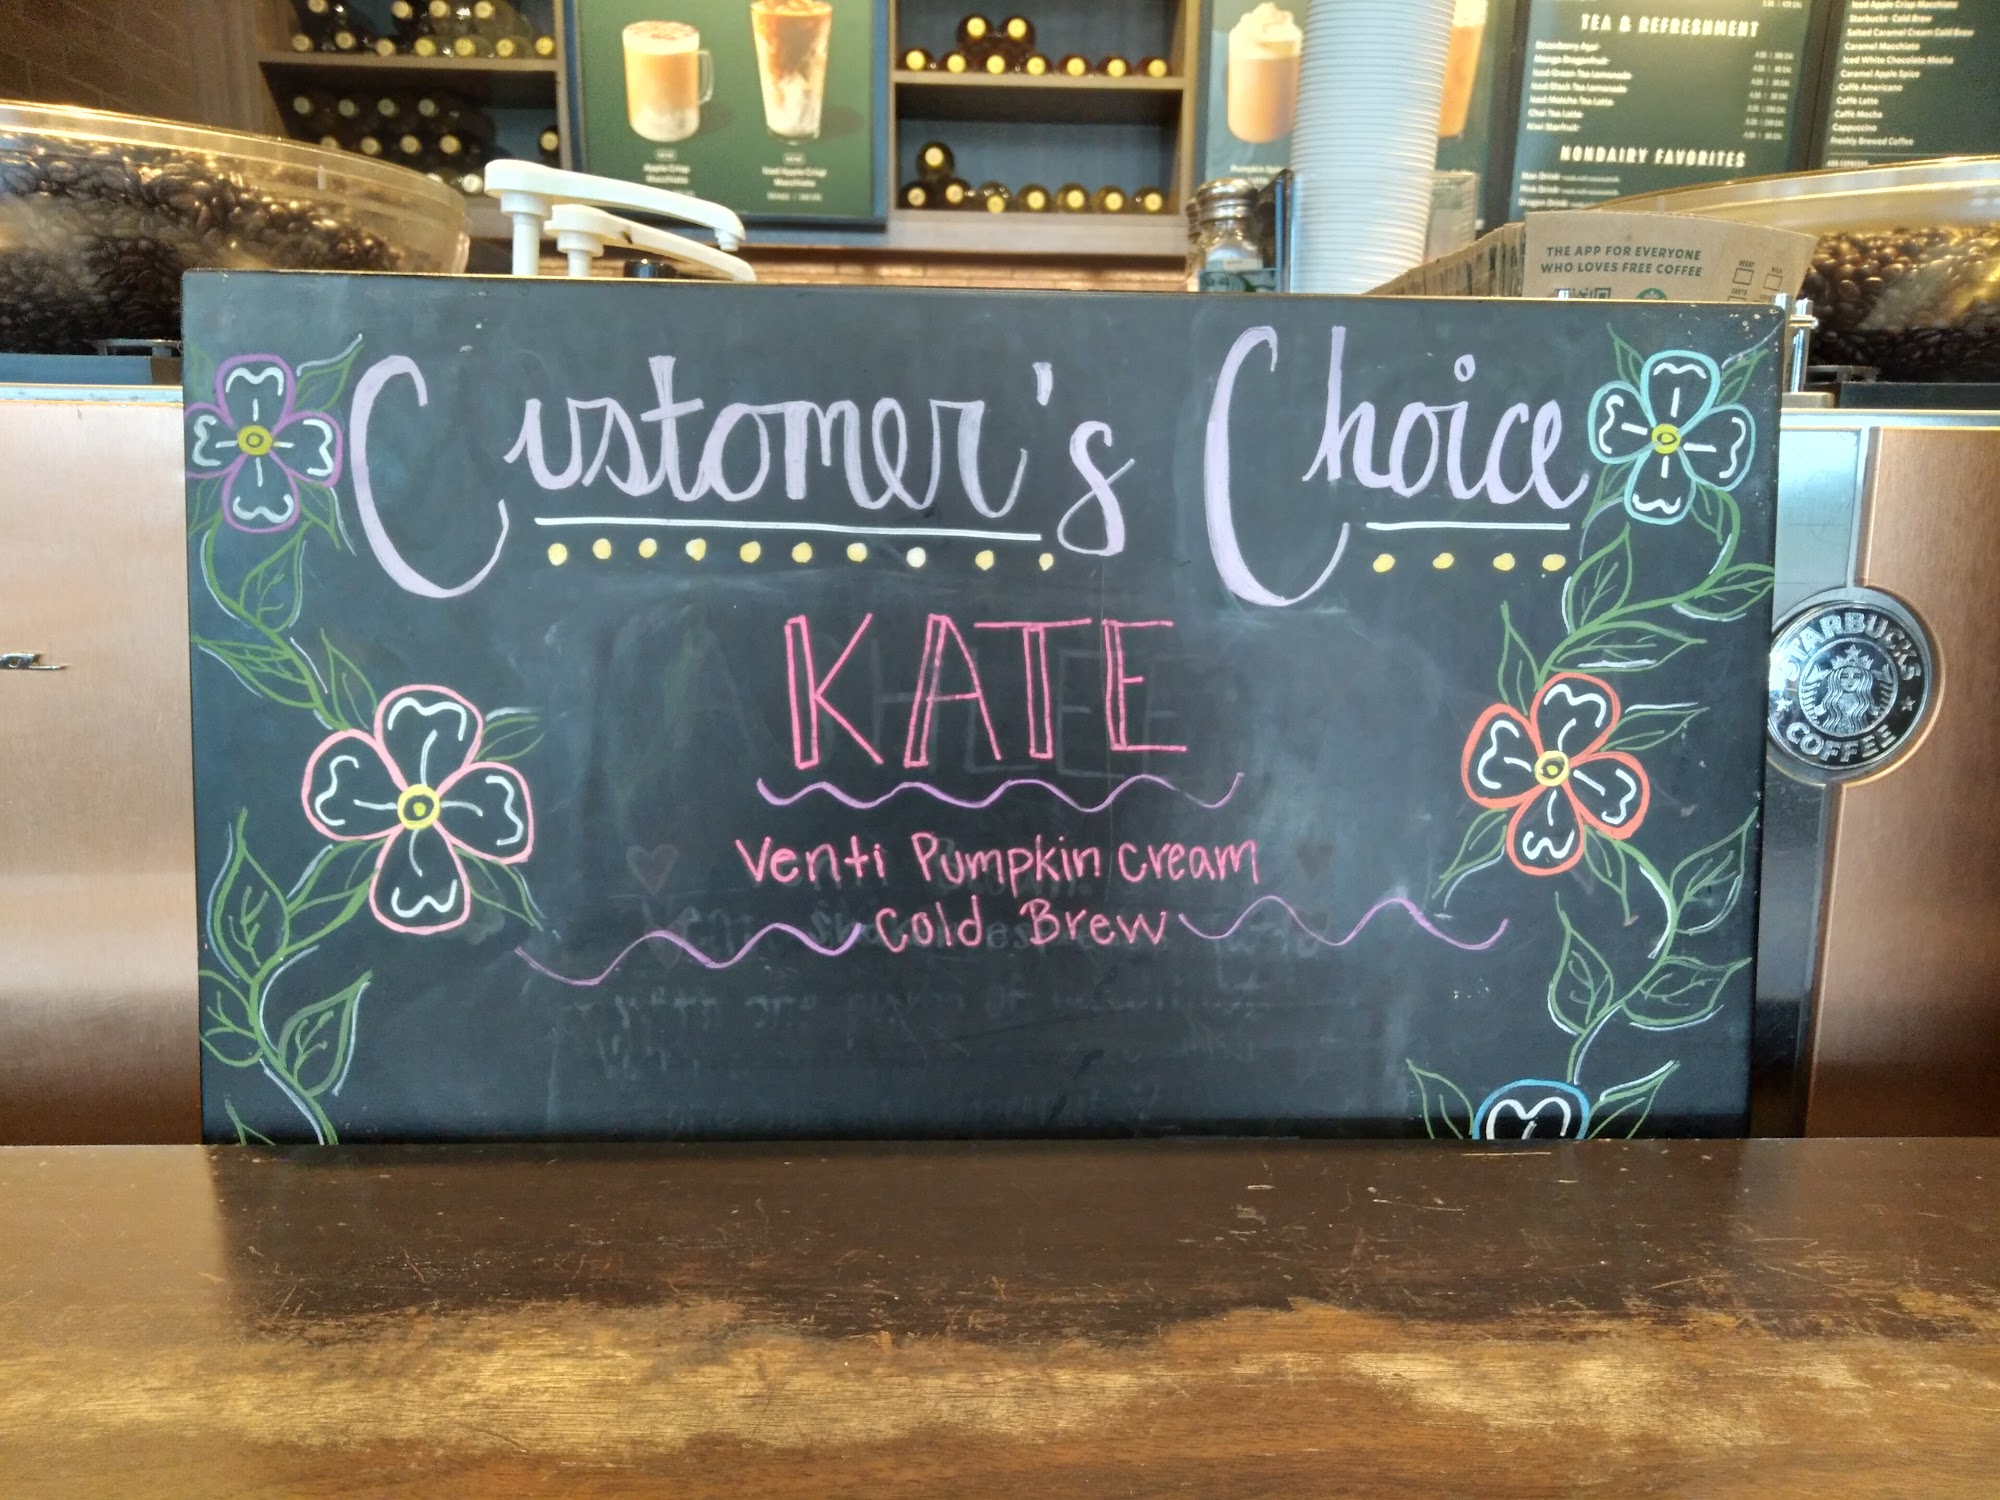 TEA & REFRESHMENT
Strawberry Açaí
Mango Dragonfruit
Iced Green Tea Lemonade
Iced Black Tea Lemonade
Iced Matcha Tea Latte
Chai Tea Latte
Kiwi Starfruit
NONDAIRY FAVORITES
Pink Drink
Dragon Drink
Iced Apple Crisp Macchiato
Starbucks Cold Brew
Salted Caramel Cream Cold Brew
Caramel Macchiato
Iced White Chocolate Mocha
Caramel Apple Spice
Caffè Americano
Caffè Latte
Caffè Mocha
Cappuccino
Freshly Brewed Coffee
Apple Crisp
Macchiato
Iced Apple Crisp
Macchiato
THE APP FOR EVERYONE
WHO LOVES FREE COFFEE
DECAF
MILK
Customer's Choice
KATE
Venti Pumpkin Cream
Cold Brew
STARBUCKS
COFFEE